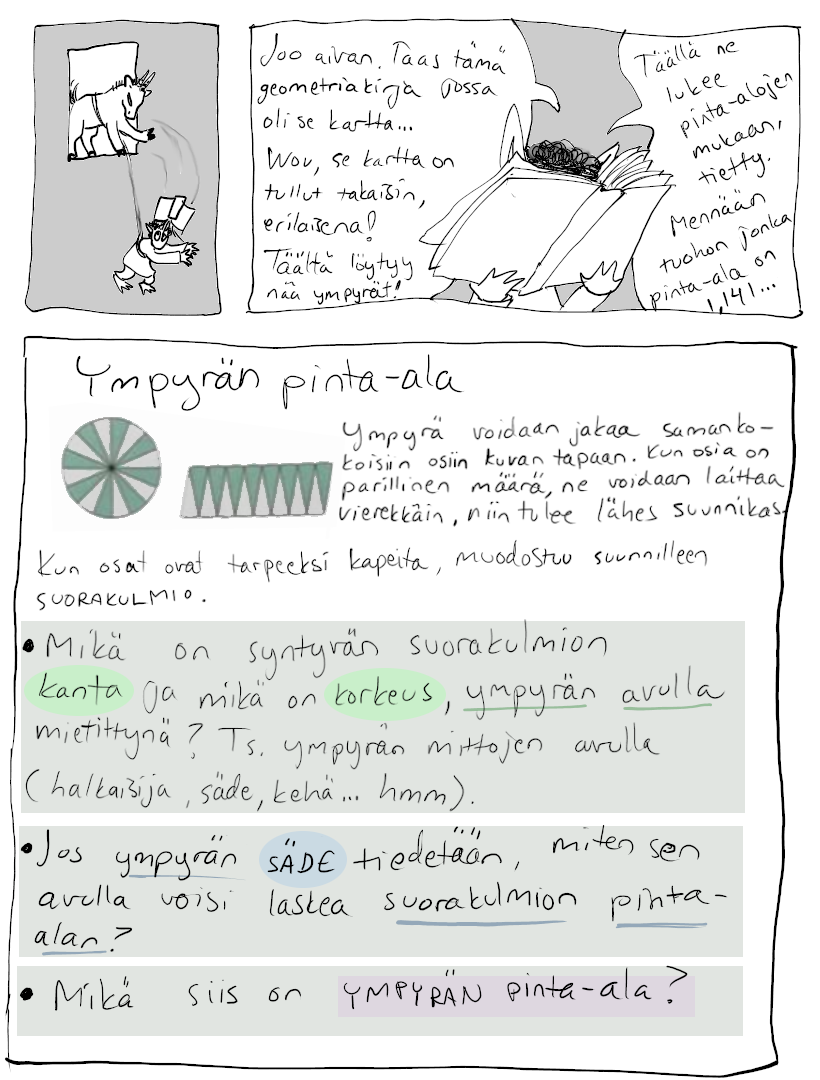 Joo aivan. Taas tämä
geometriakirja jossa
oli se kartta...
Wou, se kartta on
tullut takaisin,
erilaisena!
Täältä löytyy
nää ympyrät!
Täällä ne
lukee
pinta-alojen
mukaan,
tietty.
Mennään
tuohon jonka
pinta-ala on
1,141...
Ympyrän pinta-ala
Ympyrä voidaan jakaa samanko-
koisiin osiin kuvan tapaan. Kun osia on
parillinen määrä, ne voidaan laittaa
vierekkäin, niin tulee lähes suunnikas.
Kun osat ovat tarpeeksi kapeita, muodostuu suunnilleen
SUORAKULMIO.
• Mikä on syntyvän suorakulmion
kanta ja mikä on korkeus, ympyrän avulla
mietittynä? Ts. ympyrän mittojen avulla
(halkaisija, säde, kehä... hmm).
• Jos ympyrän SÄDE tiedetään, miten sen
avulla voisi laskea suorakulmion pinta-
alan?
• Mikä siis on YMPYRÄN pinta-ala?